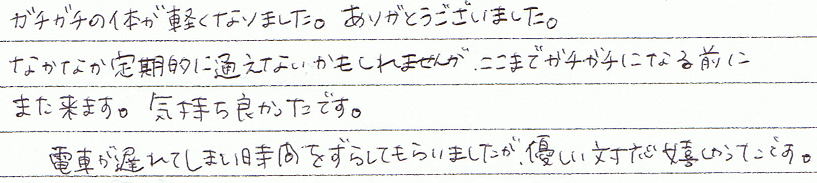 ガチガチの体が軽くなりました。ありがとうございました。
なかなか定期的に通えないかもしれませんが、ここまでガチガチになる前に
また来ます。気持ち良かったです。
電車が遅れてしまい時間をずらしてもらいましたが、優しい対応嬉しかったです。